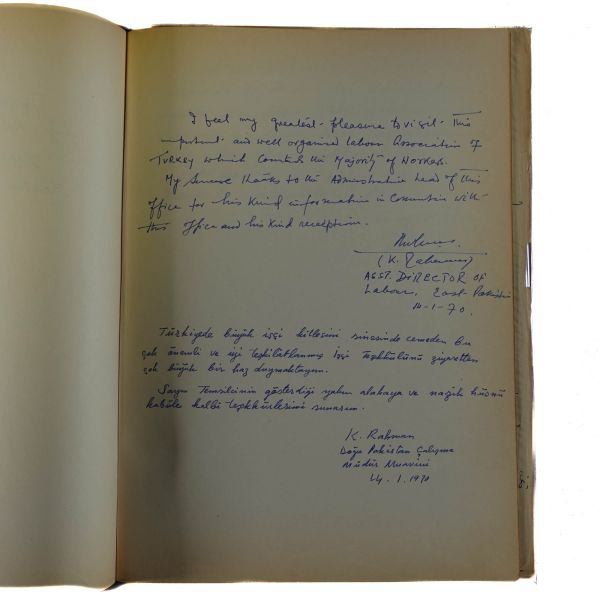 I feel my greatest pleasure to visit this
important and well organised Labour Association of
TURKEY which Controls the Majority of Workers.
My Sincere thanks to the Administrative head of this
Office for his Kind information in Connection with
this office and his Kind reception.
(K. Rahman)
ASST. DIRECTOR OF
Labour, East Pakistan
14-1-70.
Türkiyede büyük işçi kitlesini sinesinde cemeden bu
çok önemli ve iyi teşkilatlanmış İşçi Teşekkülünü ziyaretten
çok büyük bir haz duymaktayım.
Sayın Temsilcinin gösterdiği yakın alakaya ve nazik hüsnü
kabule kalbi teşekkürlerimi sunarım.
K. Rahman
Doğu Pakistan Çalışma
Müdür Muavini
14.1.1970